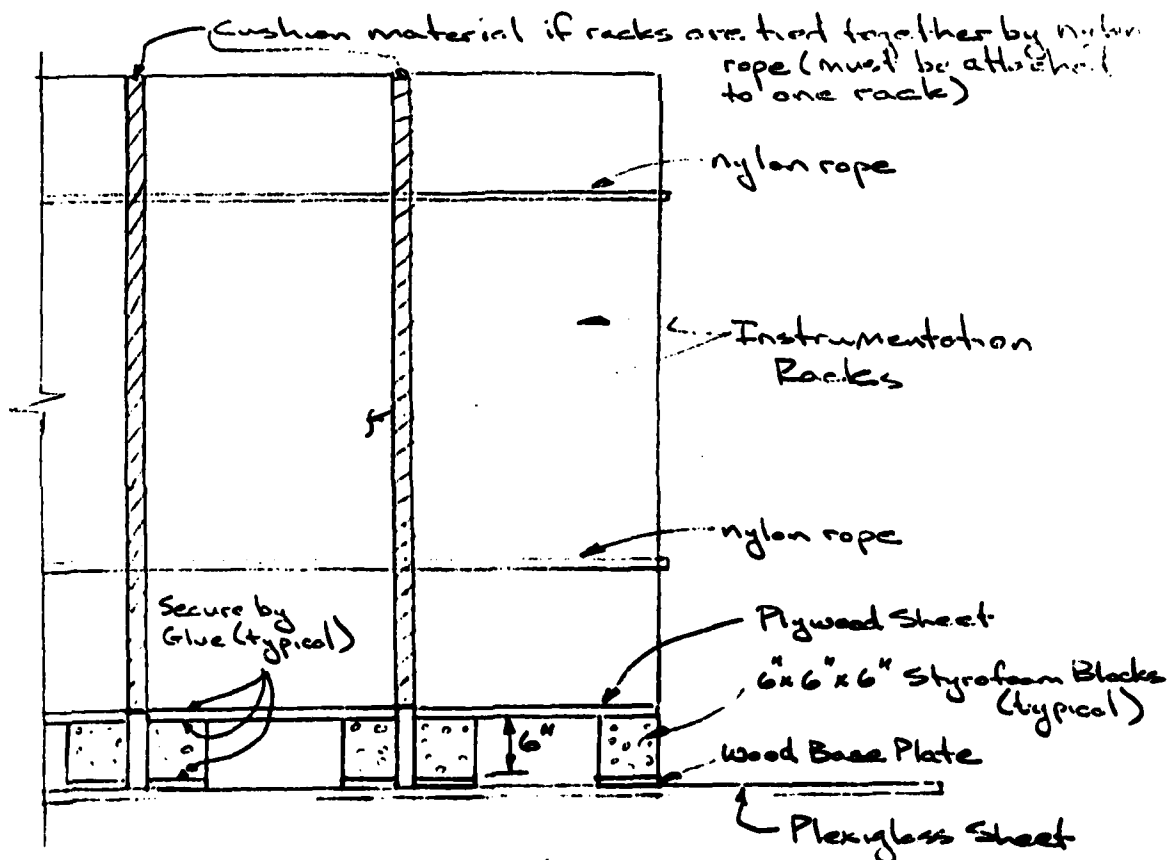 Cushion material if racks are tied together by nylon
rope (must be attached
to one rack)
nylon rope
Instrumentation
Racks
nylon rope
Secure by
Glue (typical)
Plywood Sheet
6" x 6" x 6" Styrofoam Blocks
(typical)
6"
Wood Base Plate
Plexiglass Sheet